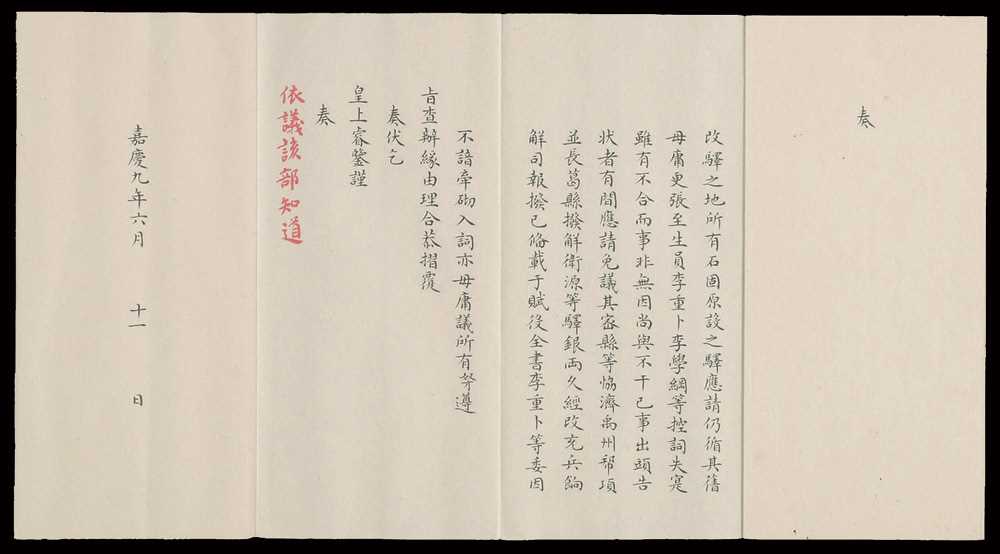 奏
改驛之地所有石固原設之驛應請仍循其舊
毋庸更張至生員李重卜李學綱等控詞失寔
雖有不合而事非無因尚與不干己事出頭告
狀者有間應請免議其密縣等協濟禹州帮項
並長葛縣撥解衛源等驛銀両久經改充兵餉
解司報撥已俻載于賦役全書李重卜等委因
不諳牽砌入詞亦毋庸議所有芽遵
旨查辦緣由理合恭摺覆
奏伏乞
皇上睿鑒謹
奏
依議該部知道
嘉慶九年六月 十一 日